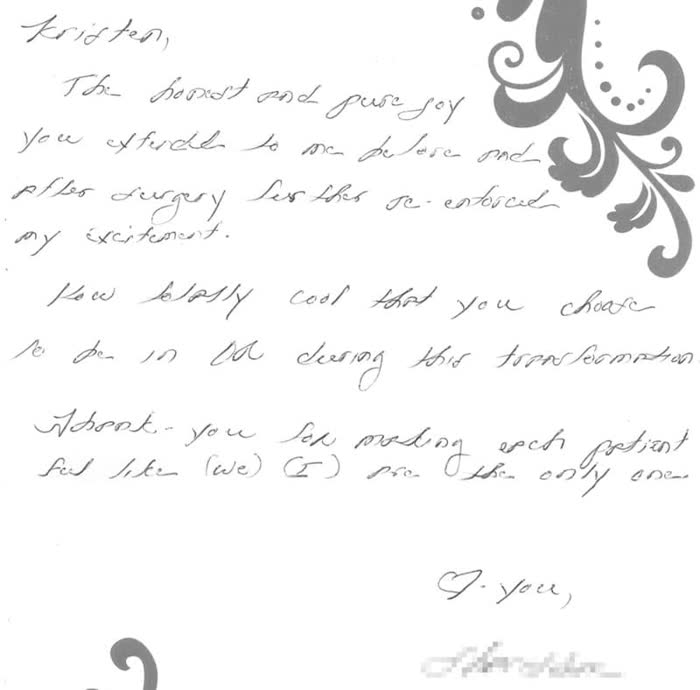 Kristen,
The honest and pure joy
you extended to me before and
after surgery further re-enforced
my excitement.
How totally cool that you choose
to be in OR during this transformation.
Thank-you for making each patient
feel like (we) (I) are the only one.
♡ you,